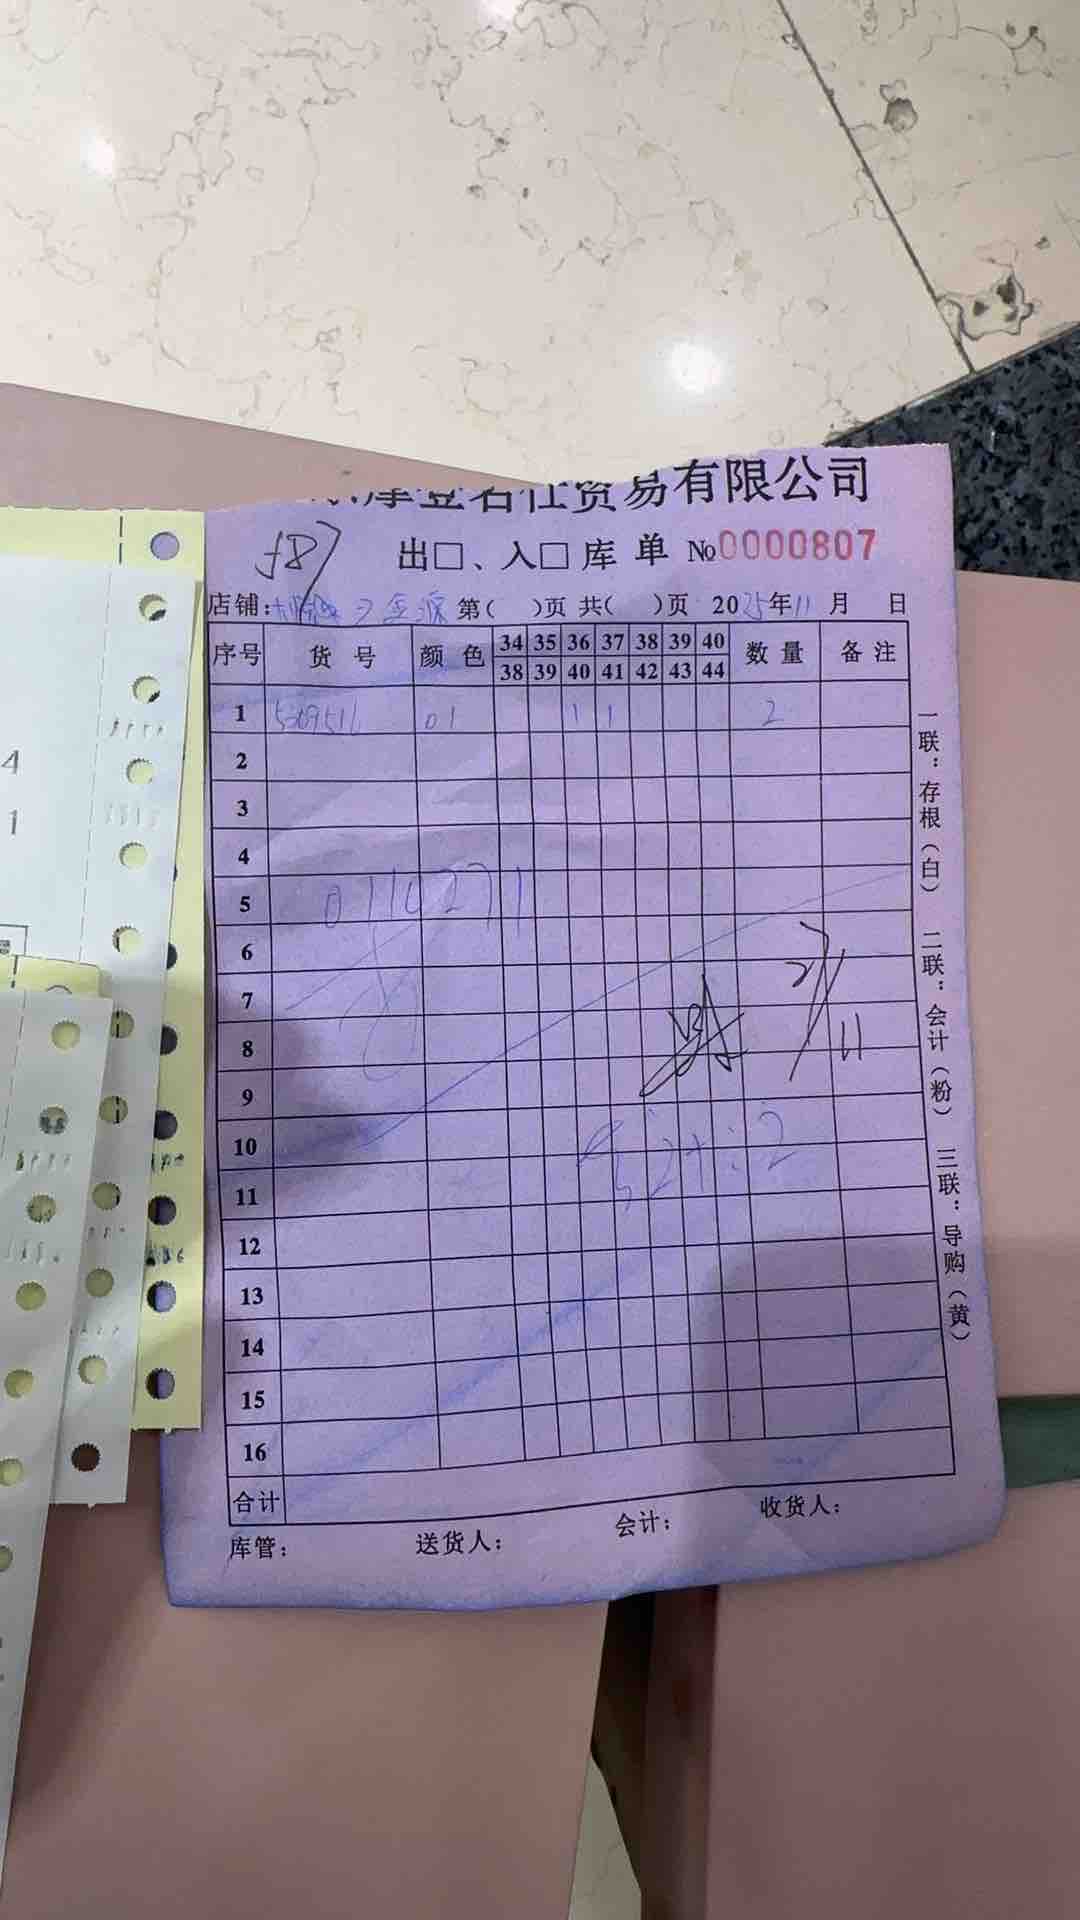 摩登名仕贸易有限公司
587
出□、入□库单 №0000807
店铺: 金源 第( )页 共( )页 2025年11月 日
序号 货号 颜色 34 35 36 37 38 39 40 数量 备注
38 39 40 41 42 43 44
1 5309516 01 1 1 2
2
3
4
5 0110271
6
7
8
9
10
11
12
13
14
15
16
合计
库管: 送货人: 会计: 收货人:
一联:存根(白) 二联:会计(粉) 三联:导购(黄)
4
1